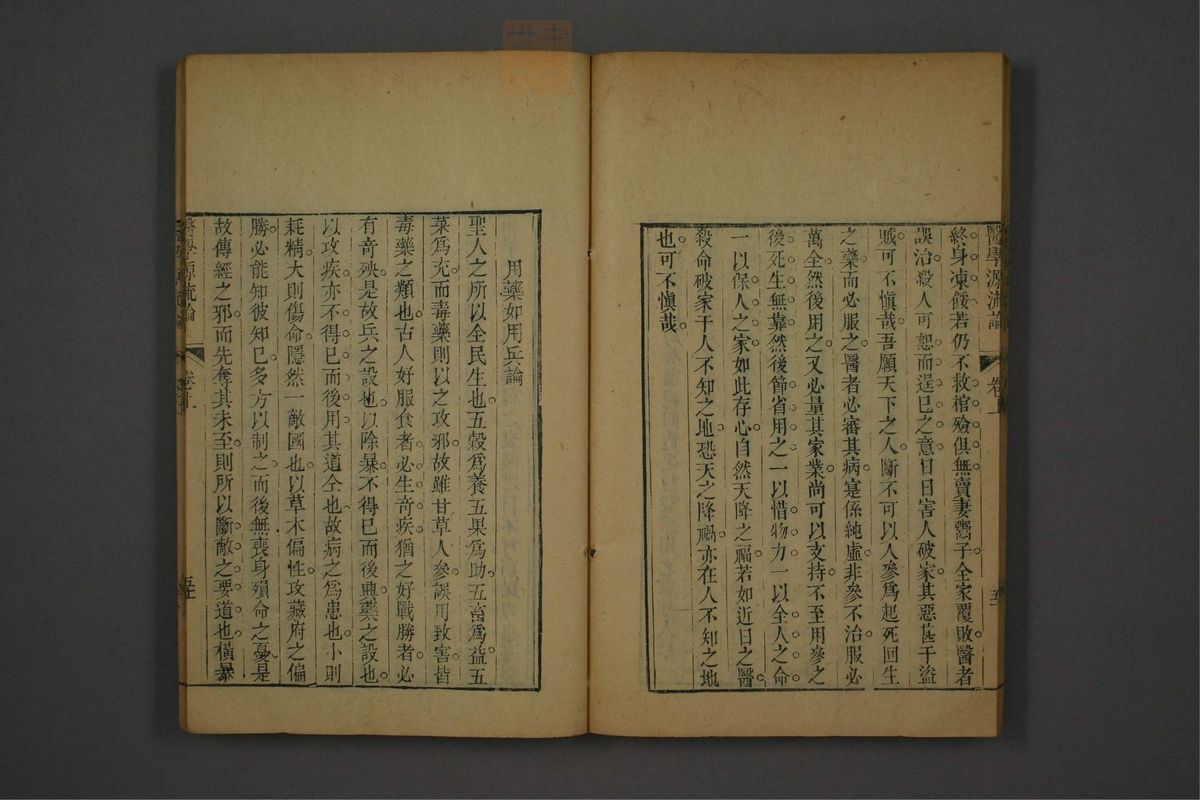 醫學源流論 卷上 五
終身凍餒若仍不救棺殮俱無賣妻鬻子全家覆敗醫者
誤治殺人可恕而逞已之意日日害人破家其惡甚于盜
賊可不慎哉吾願天下之人斷不可以人參爲起死回生
之藥而必服之醫者必審其病寔係純虛非參不治服必
萬全然後用之又必量其家業尚可以支持不至用參之
後死生無靠然後節省用之一以惜物力一以全人之命
一以保人之家如此存心自然天降之福若如近日之醫
殺命破家于人不知之地恐天之降禍亦在人不知之地
也可不慎哉
用藥如用兵論
聖人之所以全民生也五穀爲養五果爲助五畜爲益五
菜爲充而毒藥則以之攻邪故雖甘草人參誤用致害皆
毒藥之類也古人好服食者必生奇疾猶之好戰勝者必
有奇殃是故兵之設也以除暴不得已而後興藥之設也
以攻疾亦不得已而後用其道仝也故病之爲患也小則
耗精大則傷命隱然一敵國也以草木偏性攻藏府之偏
勝必能知彼知已多方以制之而後無喪身殞命之憂是
故傳經之邪而先奪其未至則所以斷敵之要道也橫暴
醫學源流論 卷上